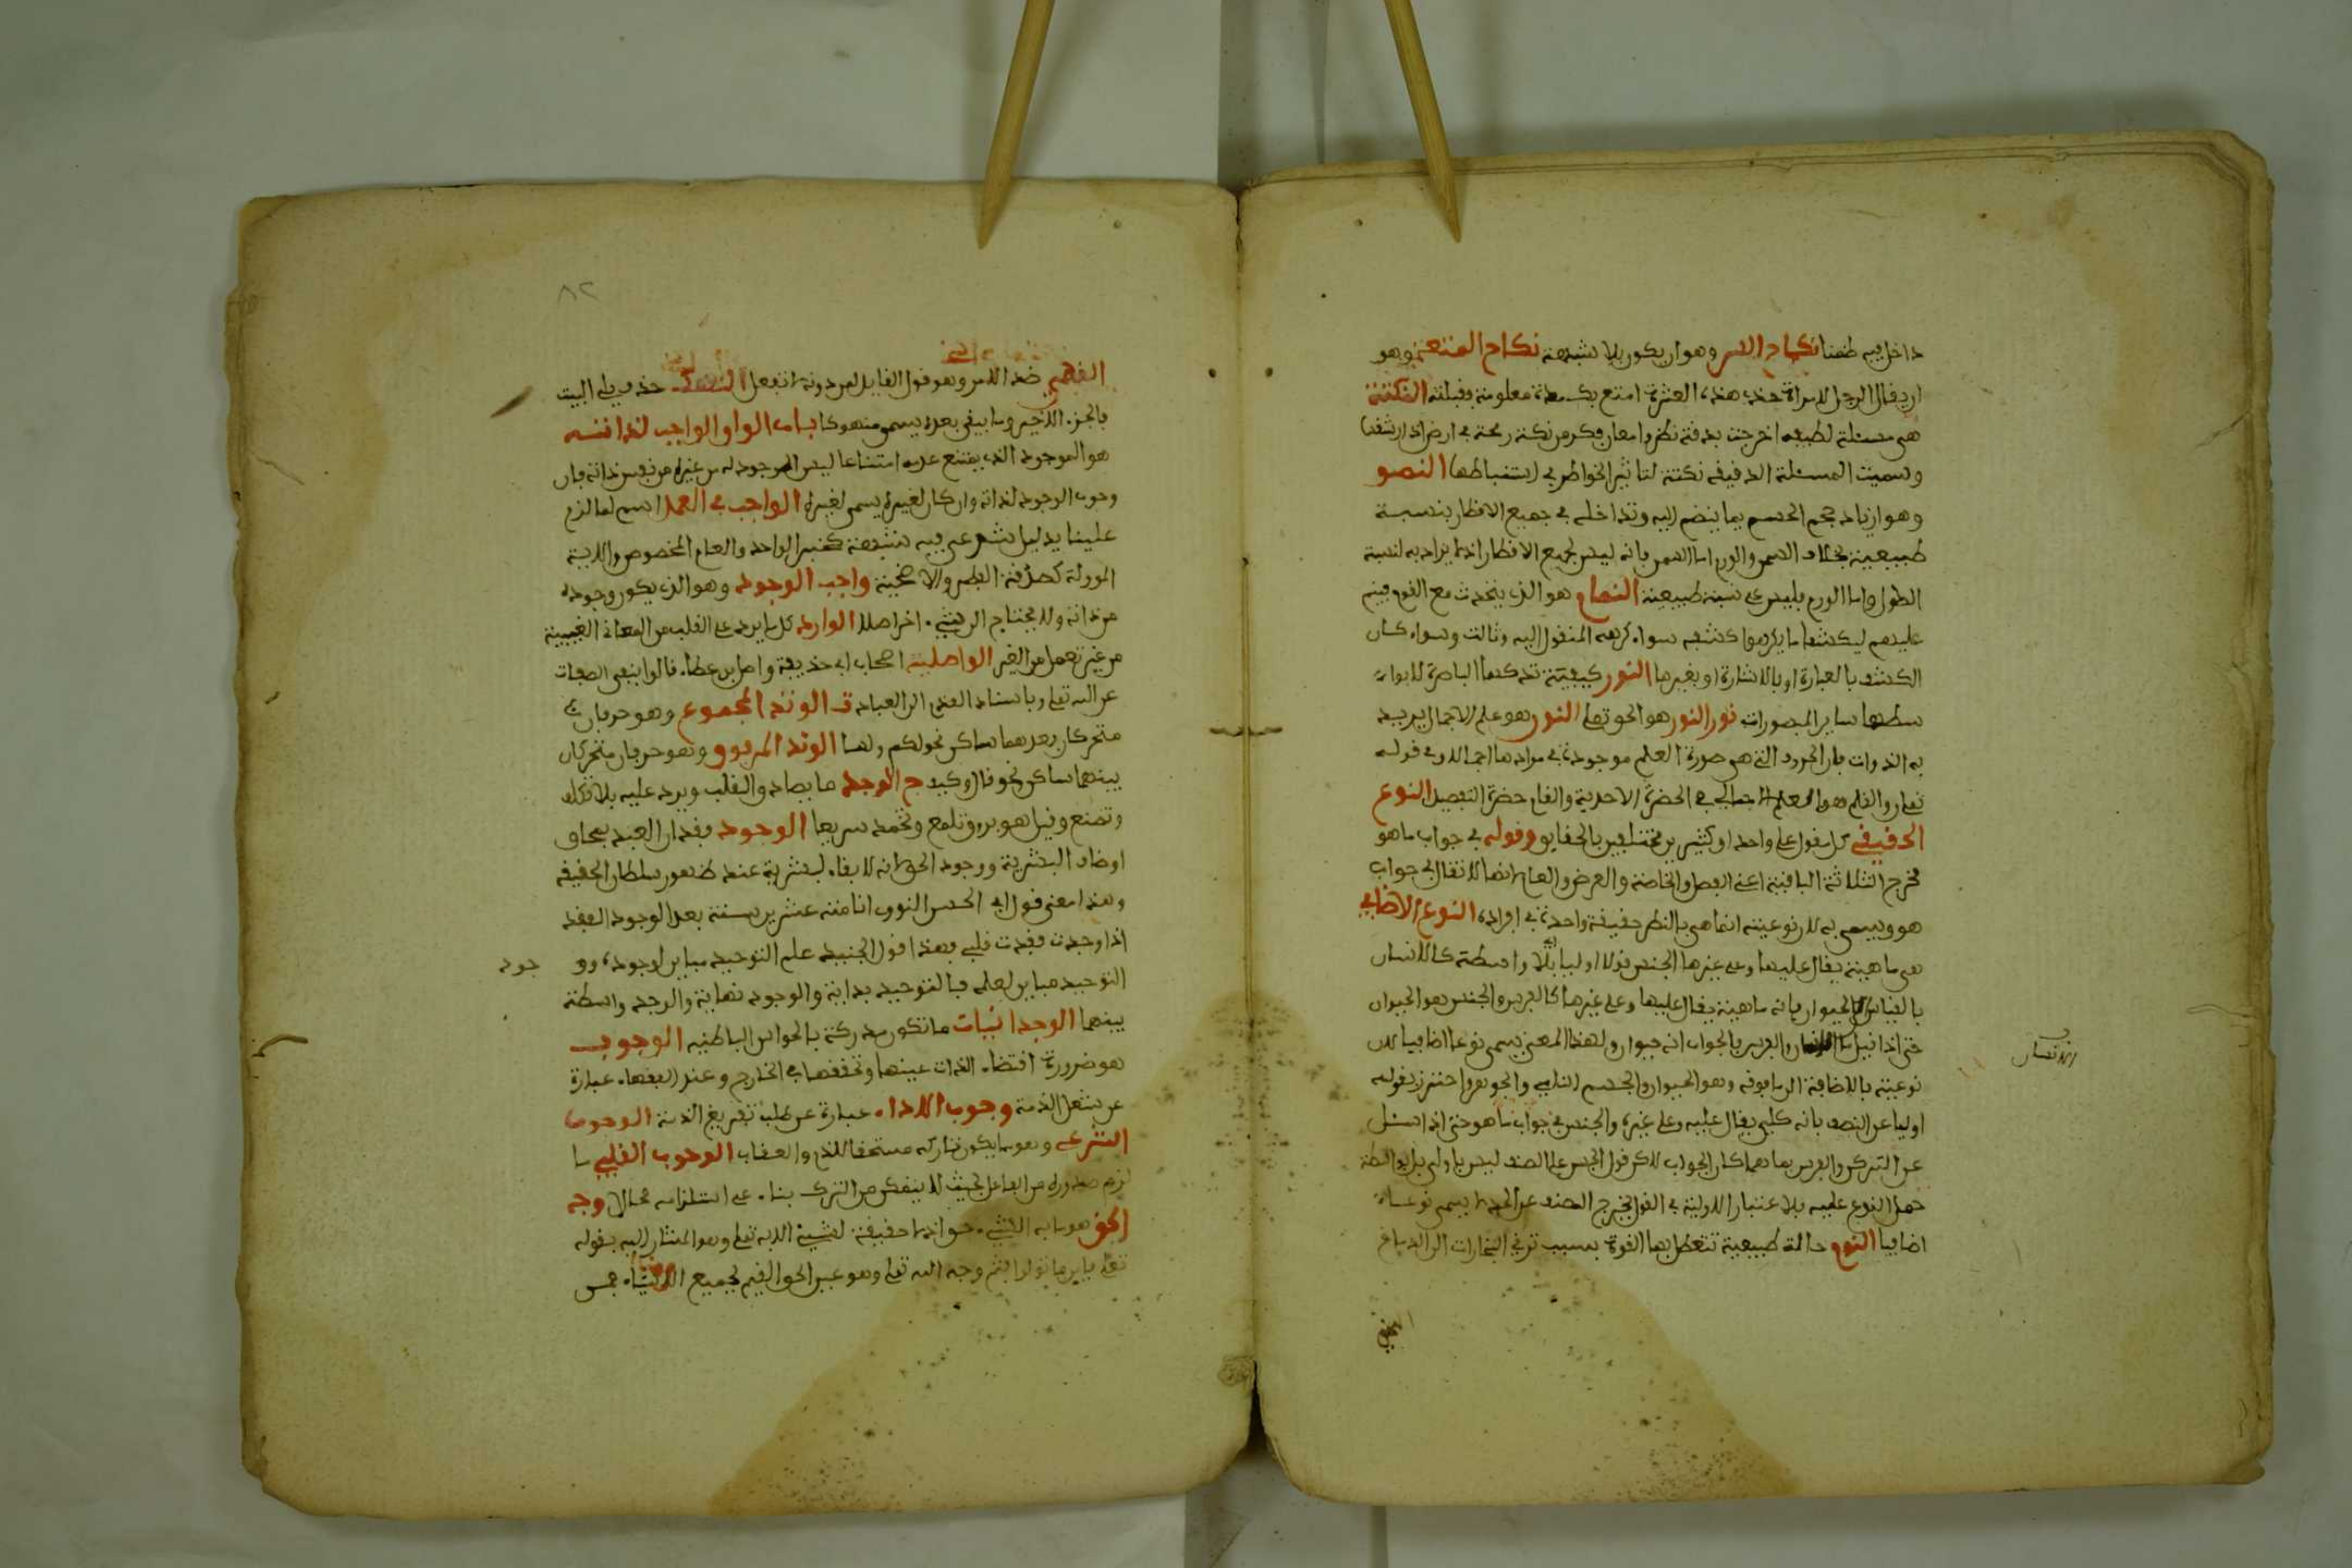 داخل فيه طعنا نكاح السر وهو ان يكون بلا شبهة نكاح المتعة وهو
ان يقال الرجل لامراة خذي هذه العشرة امتع بك مدة معلومة فقبلته النكتة
هي مسئلة لطيفة اخرجت بدقة نظر وامعان فكر من نكت رمحه في ارض اذا اثر فيها
وسميت المسئلة الدقيقة نكتة لتاثير الخواطر في استنباطها النمو
وهو ازياد حجم الجسم بما ينضم اليه وتداخله في جميع الاقطار بنسبة
طبيعية بخلاف السمن والورم اما السمن فانه ليس لجميع الاقطار اذ لا يزاد به لنسبة
الطول واما الورم فليس على نسبة طبيعية النمام هو الذي يتحدث مع القوم فينم
عليهم ليكشف ما يكرهوا كشفه سواء كرهه المنقول اليه وثالث وسواء كان
الكشف بالعبارة او بالاشارة او بغيرها النور كيفية تدركها الباصرة اولا وبواسـ
سطتها ساير المبصورات نور النور هو الحق تعلى النون هو علم الاجمال يريد
به الذوات فان الحروف التي هي صورة العلم موجودة في مدادها اجمالا وفي قوله
تعلى ن والقلم هو العلم الاجمالي في الحضرة الاحدية والقلم حضرة التفصيل النوع
الحقيقي كل مقول على واحد او كثيرين مختلفين بالحقايق وقوله في جواب ما هو
مخرج الثلاثة الباقية اعني الفصل والخاصة والعرض والعام انها لا تقال في جواب
هو ويسمى به لان نوعيته انما هي بالنظر حقيقة واحدة في افراده النوع الاضافي
هي ماهية يقال عليها وعلى غيرها الجنس قولا اوليا اي بلا واسطة كالانسان
بالقياس الى الحيوان فانه ماهية يقال عليها وعلى غيرها كالفرس الجنس هو الحيوان
حتى اذا قيل ما الانسان والفرس فالجواب انه حيوان ولهذا المعنى يسمى نوعا اضافيا لان
الانسان
نوعيته بالاضافة الى ما فوقه وهو الحيوان والجسم النامي والجوهر واحترز بقوله
اوليا عن الصنف فانه كلي يقال عليه وعلى غيره الجنس في جواب ما هو حتى اذا سئل
عن التركي والفرس بما هما كان الجواب لاكن قول الجنس على الصنف ليس باولي بل بواسطة
حمل النوع عليه فلاعتبار الاولية في القول يخرج الصنف عن الحد لا يسمى نوعا
اضافيا النوم حالة طبيعية تتعطل بها القوة بسبب ترقي البخارات الى الدماغ
النهي
٨٢
النهي ضد الامر وهو قول القايل لمن دونه لا تفعل حذف ثلثي البيت
بالجزء الاخير وما بقي بعده يسمى منهوكا باب الواو الواجب لذاته
هو الموجود الذي يمتنع عدمه امتناعا ليس الوجود له من غيره من نفس ذاته فان
وجوب الوجود لذاته وان كان لغيره يسمى لغيره الواجب في العمل اسم لما لزم
علينا بدليل شرعي فيه شبهة كخبر الواحد والعام المخصوص والاية
المؤولة كصدقة الفطر والاضحية واجب الوجود وهو الذي يكون وجوده
من ذاته ولا يحتاج الى شيء اخر اصلا الوارد كل ما يرد على القلب من المعاني الغيبية
من غير تعمل من العبد الواصلية اصحاب ابي حذيفة واصل بن عطاء قالوا بنفي الصفات
عن الله تعلى وباسناد القدر الى العباد ت الوتد المجموع وهو حرفان
متحركان بعدهما ساكن نحو لكم ولها الوتد المفروق وهو حرفان متحركان
بينهما ساكن نحو قال وكيف ج الوجد ما يصادف القلب ويرد عليه بلا تكلف
وتصنع وقيل هو بروق تلمع وتخمد سريعا الوجود فقدان العبد بمحاق
اوصاف البشرية ووجود الحق لانه لا بقاء لبشرية عند ظهور سلطان الحقيقة
وهذا معنى قول ابي الحسن النووي انا منذ عشرين سنة بعد الوجود الفقد
اذا وجدت فقدت قلبي وهذا قول الجنيد علم التوحيد مباين لوجوده وو
جود
التوحيد مباين لعلمه فالتوحيد بداية والوجود نهاية والوجد واسطة
بينهما الوجدانيات ما تكون مدركة بالحواس الباطنية الوجوب
هو ضرورة اقتضاء الذات عينها وتحققها في الخارج وعند الفقهاء عبارة
عن شغل الذمة وجوب الاداء عبارة عن طلب تفريغ الذمة الوجوب
الشرعي وهو ما يكون تاركه مستحقا للذم والعقاب الوجوب العقلي ما
لزم صدوره من الفاعل بحيث لا يتمكن من الترك بناء على استلزامه محالا وجه
الحق هو ما به الشيء حق اذ لا حقيقة لشيء الا به تعلى وهو المشار اليه بقوله
تعلى فاينما تولوا فثم وجه الله تعلى وهو عين الحق القيم لجميع الاشياء فمن